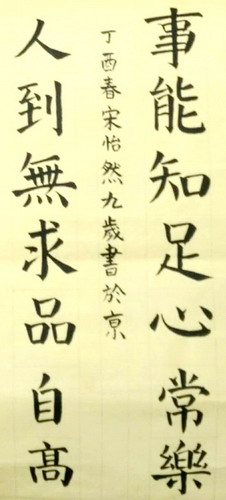 事能知足心常樂
人到無求品自高
丁酉春宋怡然九歲書於京